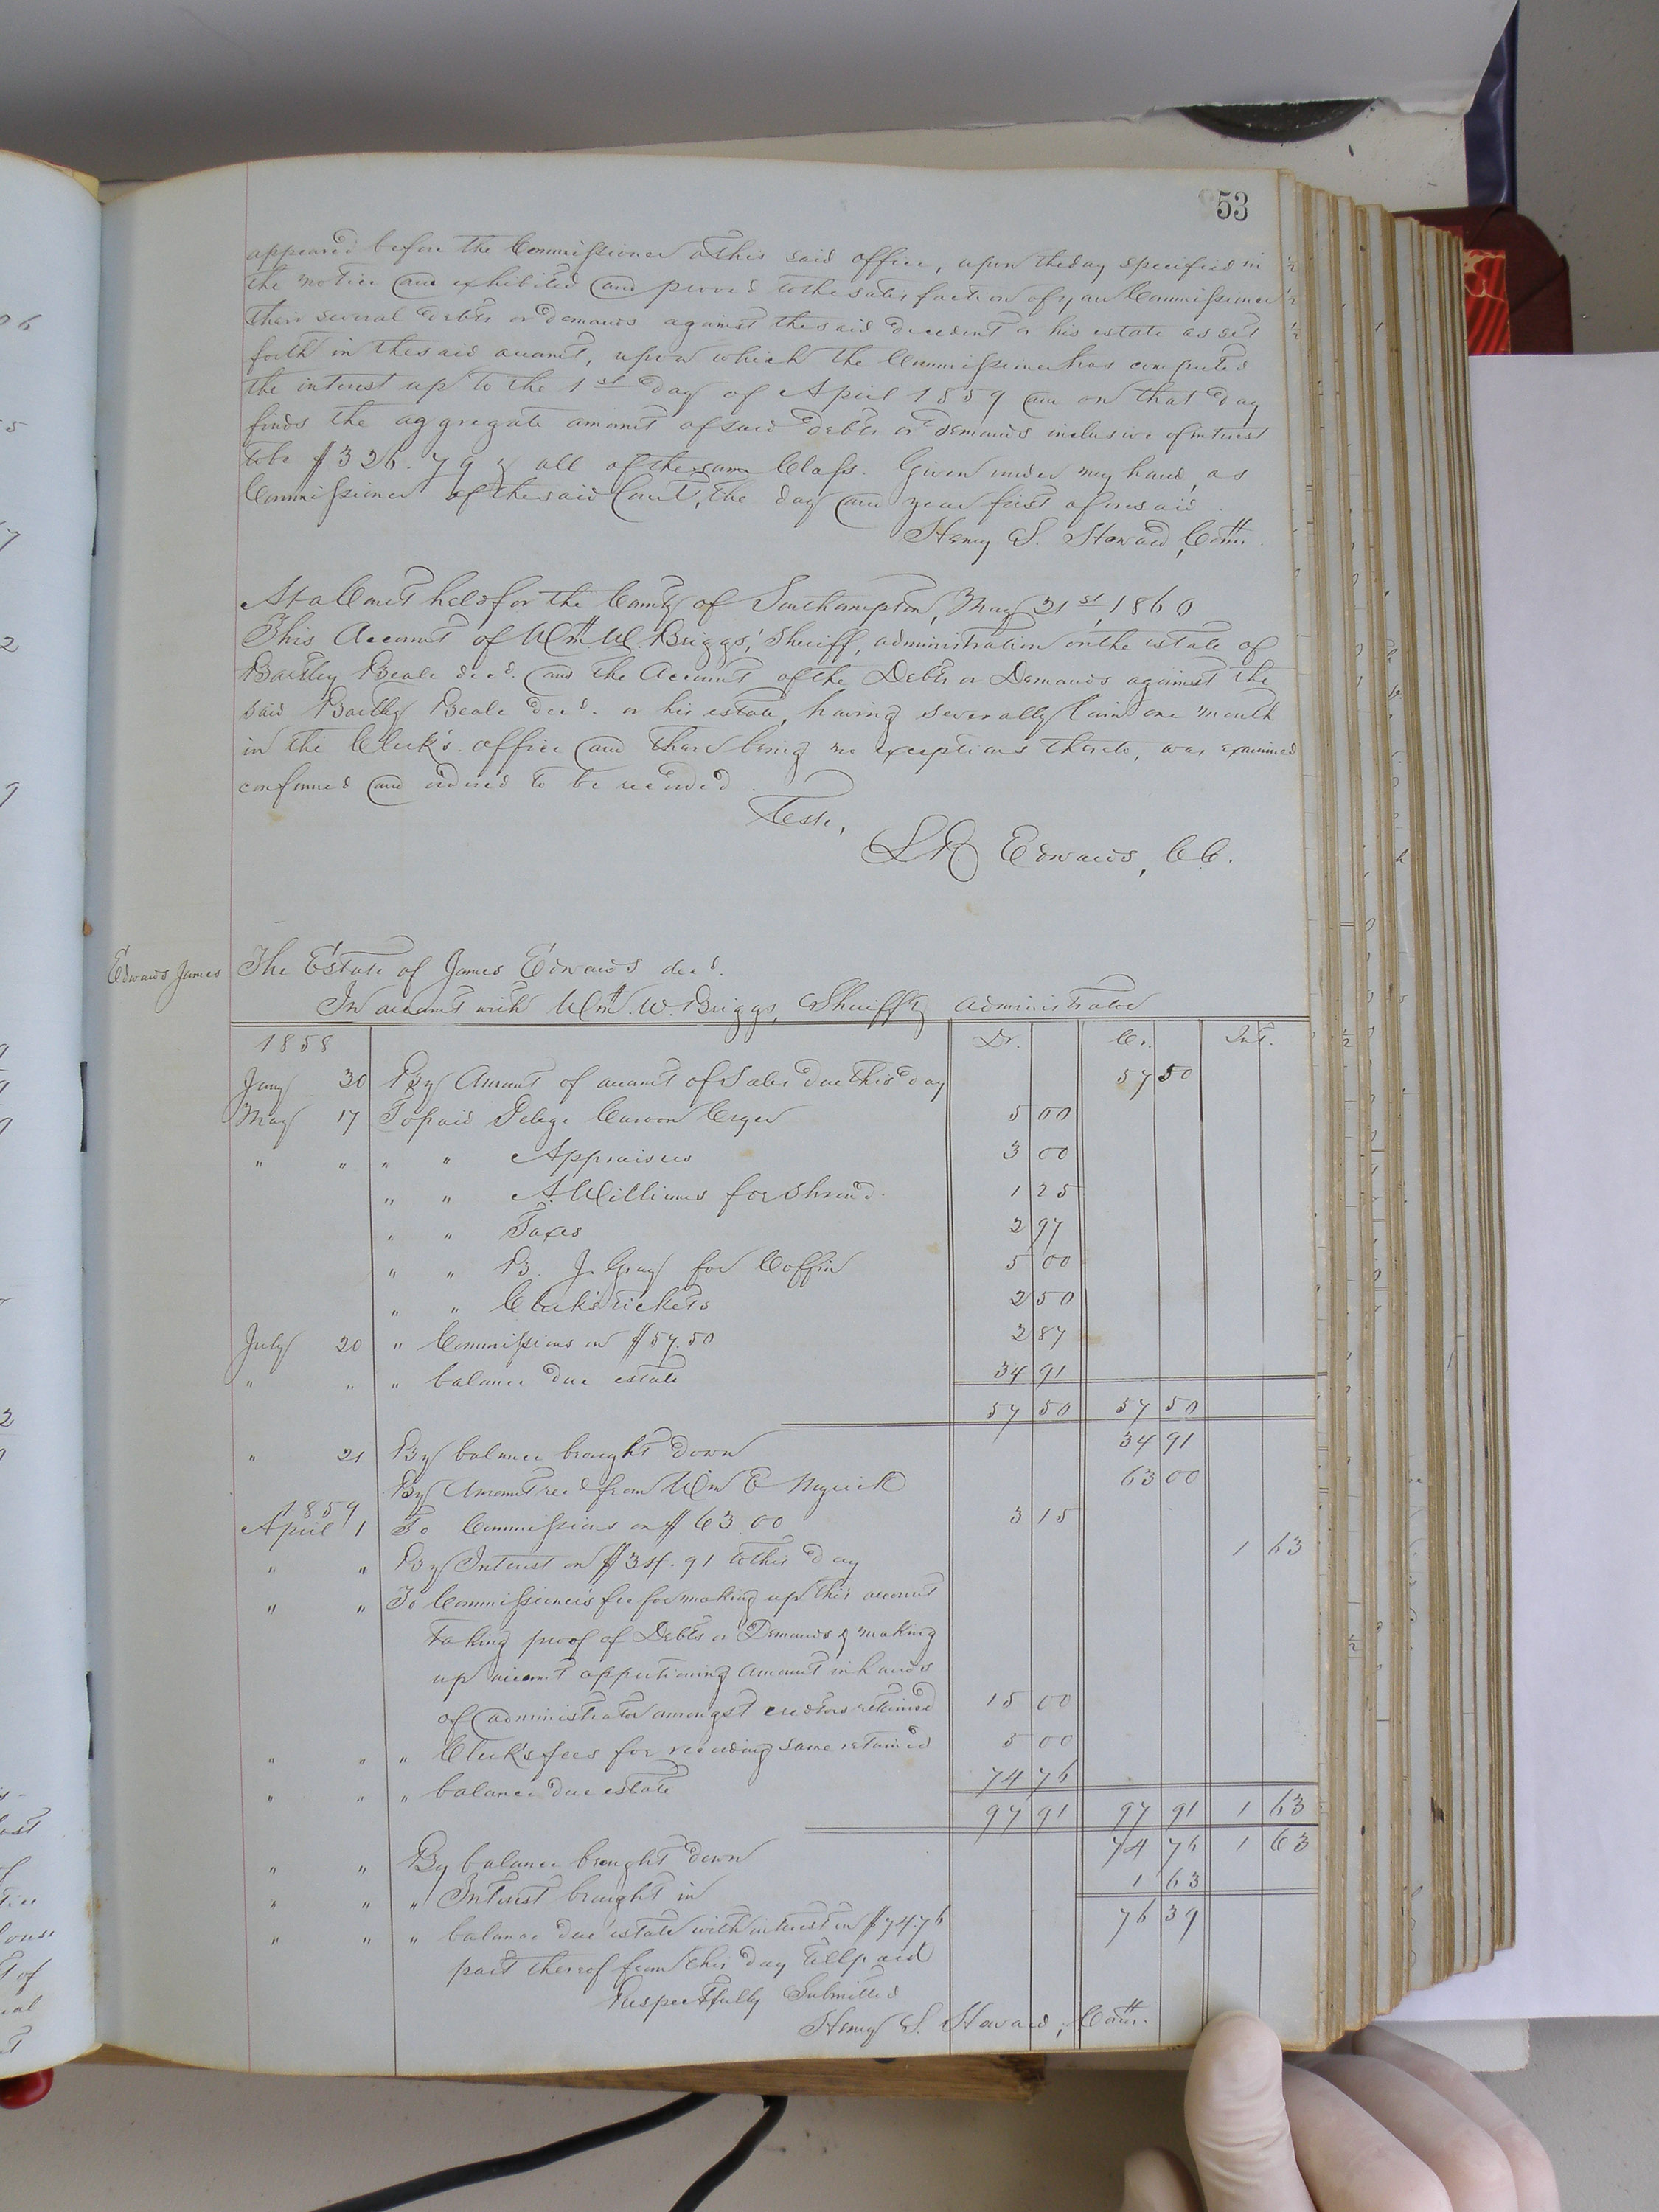 53
appeared before the Commissioner at his said office, upon the day specified in
the notice and exhibited and proved to the satisfaction of your Commissioner
their several debts or demands against the said decedent or his estate as set
forth in the said account, upon which the Commissioner has computed
the interest up to the 1st day of April 1859 and on that day
finds the aggregate amount of said debts or demands inclusive of interest
to be $326.79 & all of the same Class. Given under my hand, as
Commissioner of the said Court, the day and year first aforesaid.
Henry S. Howard, Comr.
At a Court held for the County of Southampton, May 21st, 1860
This Account of Wm. W. Briggs, Sheriff, administration on the estate of
Bartley Beale decd. and the Account of the Debts or Demands against the
said Bartley Beale decd. or his estate, having severally lain one month
in the Clerk's office and there being no exceptions thereto, was examined
confirmed and ordered to be recorded.
Teste,
LR Edwards, CC.
Edwards James
The Estate of James Edwards decd.
In account with Wm. W. Briggs, Sheriff & administrator
1858 Dr. Cr. Int.
Jany 30 By Amount of account of Sales due this day 57 50
May 17 To paid Cryer 5 00
" " " " Appraisers 3 00
" " A. Williams for Shroud. 1 25
" " Taxes 2 97
" " B. J. Gray for Coffin 5 00
" " Clerk's tickets 2 50
July 20 " Commissions on $57.50 2 87
" " " balance due estate 34 91
57 50 57 50
" 21 By balance brought down 34 91
By Amount recd from Wm E 63 00
1859
April 1 To Commissions on $63.00 3 15
" " By Interest on $34.91 to this day 1 63
" " To Commissioner's fee for making up this account
taking proof of Debts or Demands & making
up account apportioning amount in hands
of administrator amongst creditors retained 15 00
" " " Clerk's fees for recording same retained 5 00
" " " balance due estate 74 76
97 91 97 91 1 63
" " By balance brought down 74 76 1 63
" " " Interest brought in 1 63
" " " balance due estate with interest on $74.76 76 39
part thereof from this day till paid
Respectfully Submitted
Henry S. Howard, Comr.